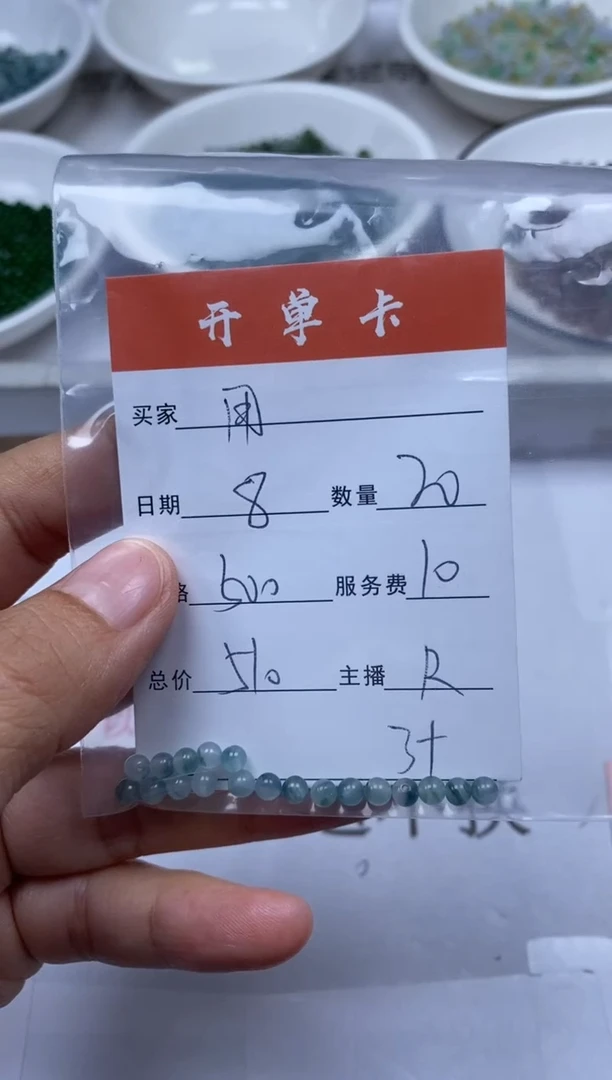 开单卡
买家
日期 8 数量 20
格 500 服务费 10
总价 510 主播 R
3+